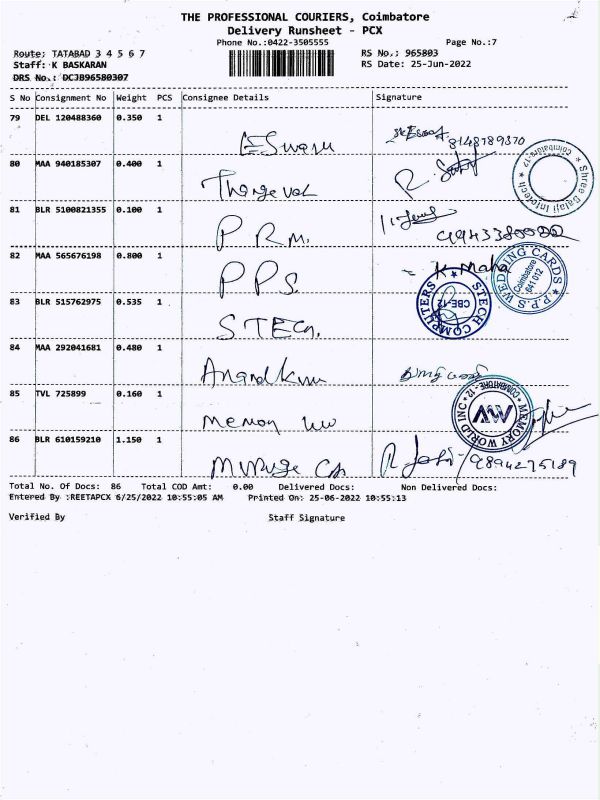 THE PROFESSIONAL COURIERS, Coimbatore
Delivery Runsheet - PCX
Phone No.:0422-3505555
Page No.:7
Route: TATABAD 3 4 5 6 7
RS No.: 965803
Staff: K BASKARAN
RS Date: 25-Jun-2022
DRS No.: DCJB96580307
S No Consignment No Weight PCS Consignee Details Signature
79 DEL 120488360 0.350 1
8148789370
80 MAA 940185307 0.400 1
Thangavel
* Shree Balaji Infotech * Coimbatore-12
81 BLR 5100821355 0.100 1
P.R.M.
82 MAA 565676198 0.800 1
PPS. K Maha
P.P.S WEDDING CARDS Coimbatore 641 012
83 BLR 515762975 0.535 1
STECh.
STECH COMPUTERS CBE-12
84 MAA 292041681 0.480 1
85 TVL 725899 0.160 1
MEMORY WORLD INC * COIMBATORE -12 *
86 BLR 610159210 1.150 1
9894275189
Total No. Of Docs: 86 Total COD Amt: 0.00 Delivered Docs: Non Delivered Docs:
Entered By :REETAPCX 6/25/2022 10:55:05 AM Printed On: 25-06-2022 10:55:13
Verified By Staff Signature